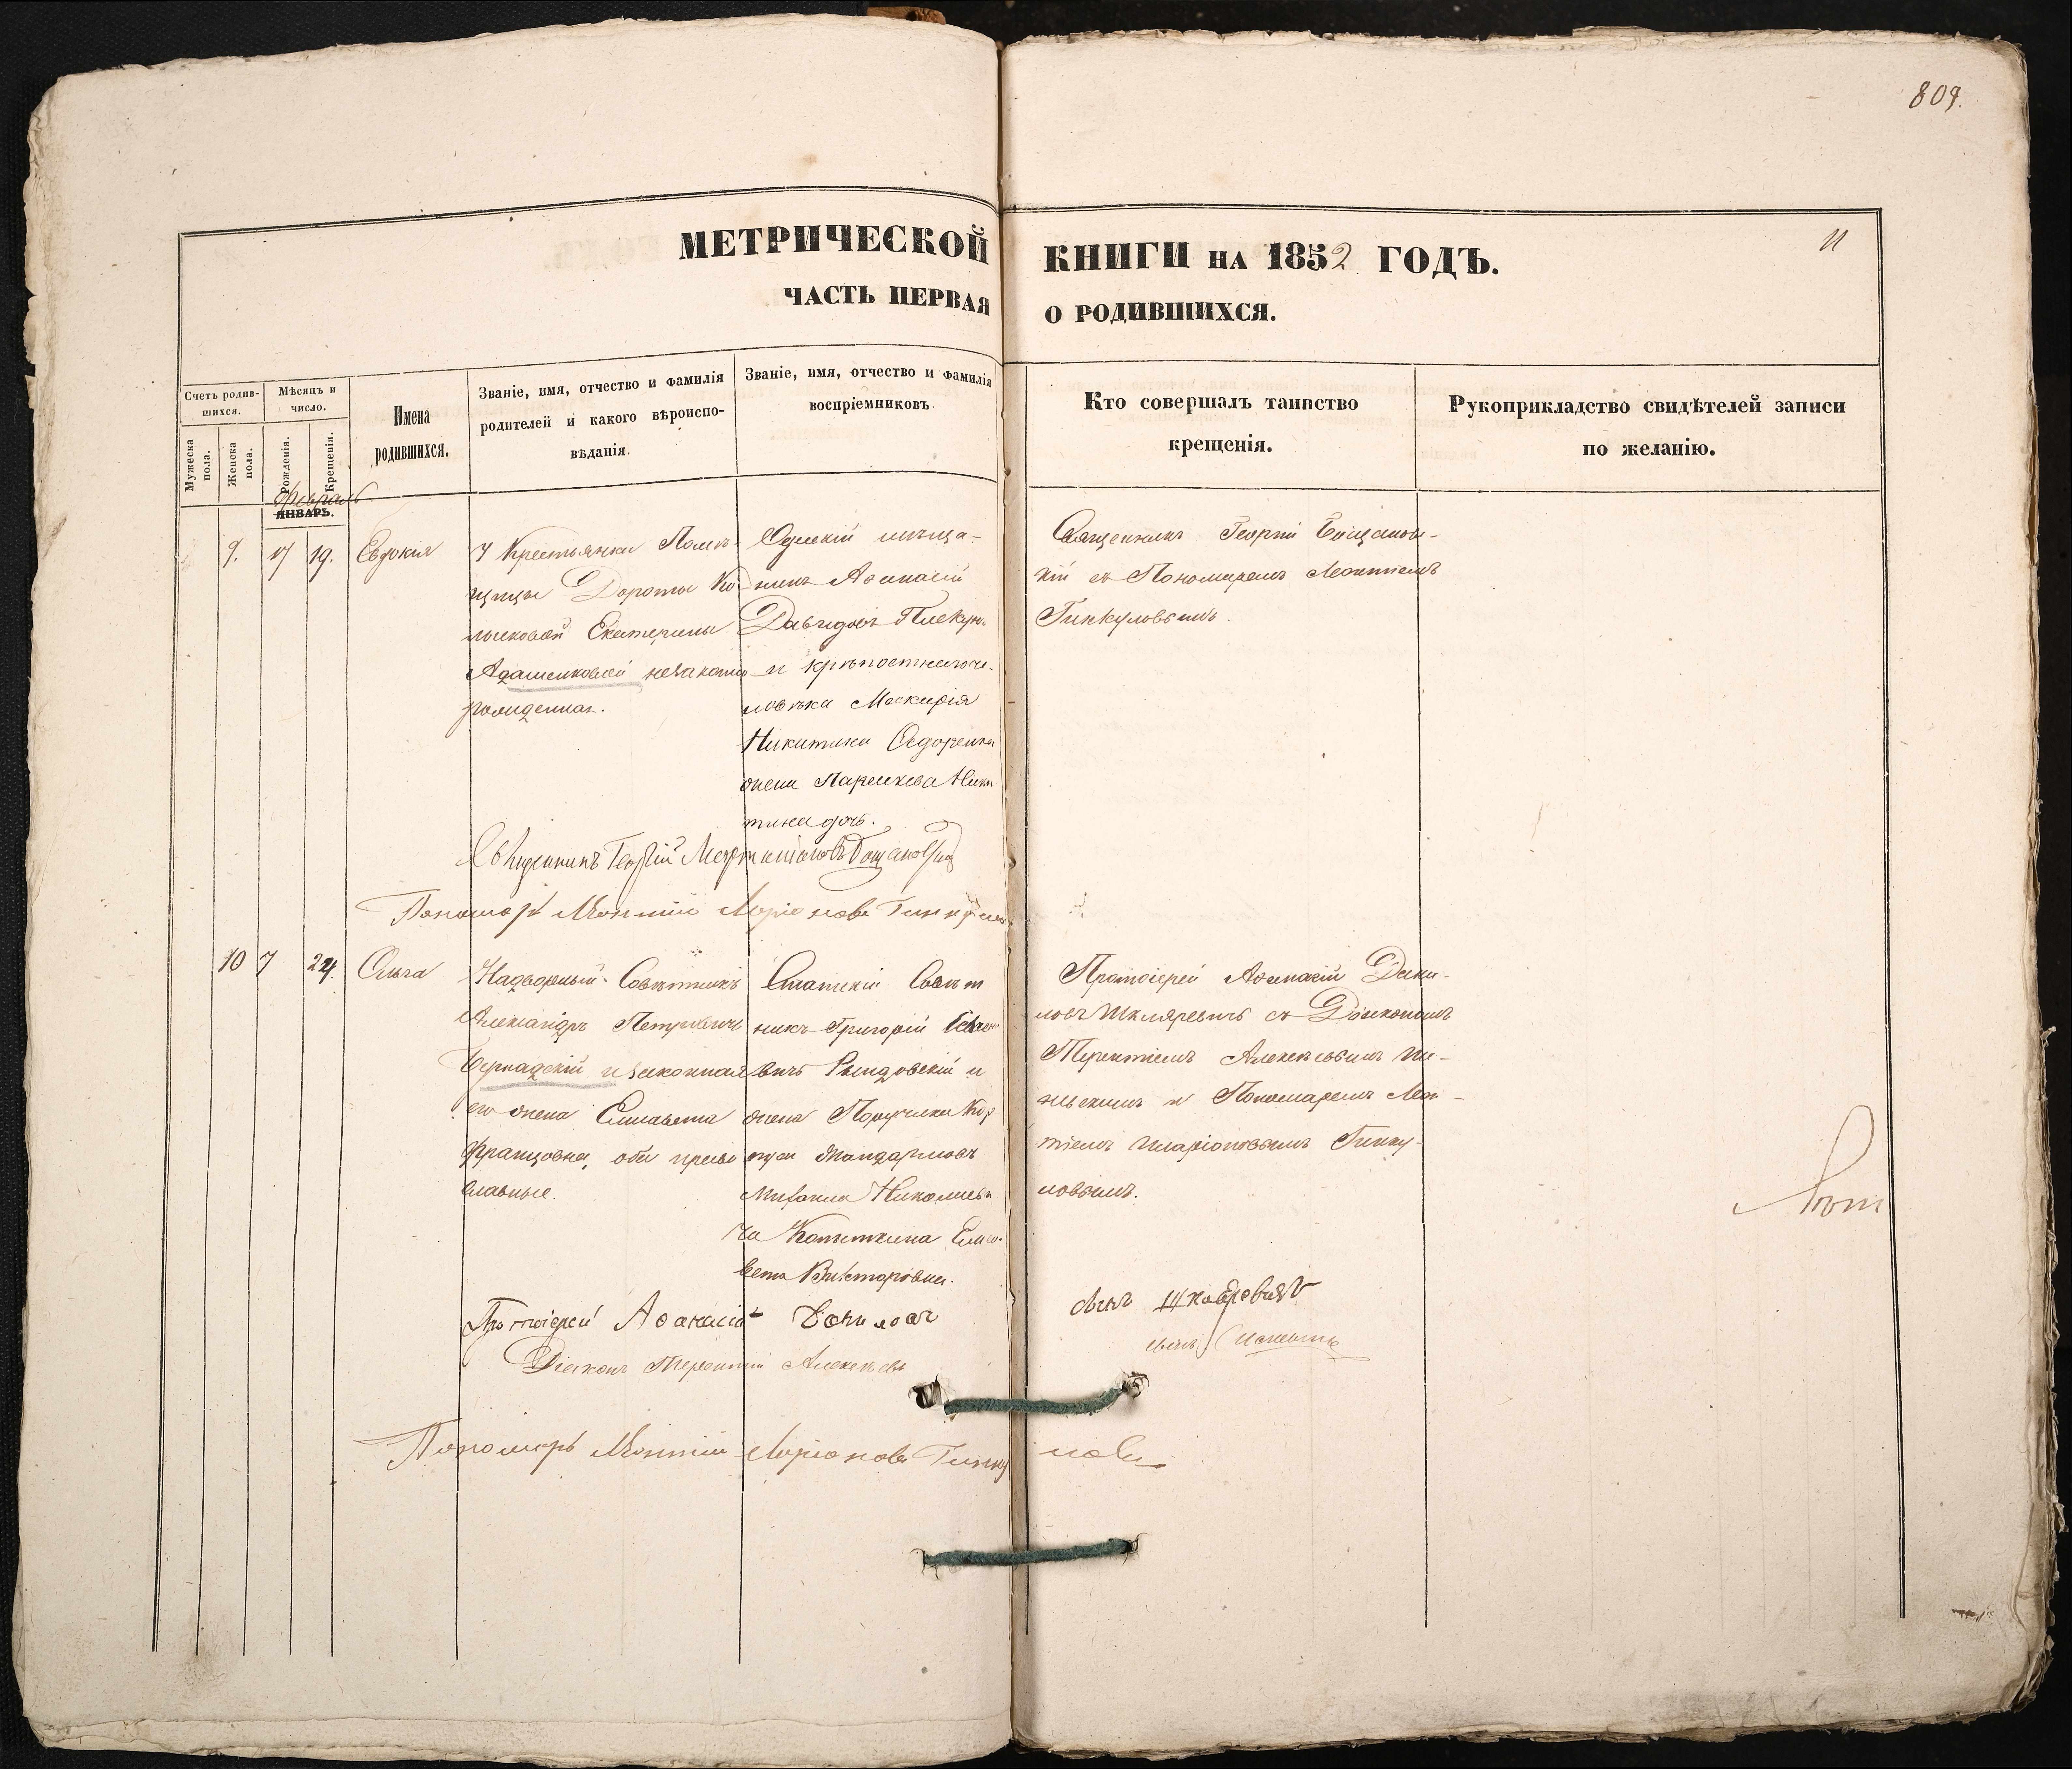 809.
11
МЕТРИЧЕСКОЙ КНИГИ НА 1852 ГОДЪ.
ЧАСТЬ ПЕРВАЯ О РОДИВШИХСЯ.
Счетъ родив-
шихся.
Мужеска пола.
Женска пола.
Мѣсяцъ и
число.
Рожденія.
Крещенія.
Имена
родившихся.
Званіе, имя, отчество и фамилія
родителей и какого вѣроиспо-
вѣданія.
Званіе, имя, отчество и фамилія
воспріемниковъ.
Кто совершалъ таинство
крещенія.
Рукоприкладство свидѣтелей записи
по желанію.
Февраль
ЯНВАРЬ.
9. 17 19. Евдокія
У Крестьянки Помѣ-
щицы Дороты
Екатерины
Адашенковой незаконно
рожденная.
Одескій мѣща-
нинъ Аѳанасій
Давидовъ
и крѣпостнаго че-
ловѣка
Никитина Ѳедоренка
жена Параскева Ники
тина дочь.
Священникъ Георгій
кій съ Пономаремъ Леонтіемъ
Гинкуловымъ.
Священникъ Георгій
Пономарь Леонтій Ларіоновъ
10 7 24. Ольга
Надворный Совѣтникъ
Александръ Петровичъ
Бернадскій и законная
его жена Елисавета
Францовна, оба право
славные.
Статскій Совѣт
никъ Григорій
вичъ Рындовскій и
жена Поручика Кор
пуса Жандармовъ
Михаила Николаеви
ча Копыткина Елиса-
вета Викторовна.
Протоіерей Аѳанасій Дани-
ловъ Шкляревичъ съ Діакономъ
Терентіемъ Алексѣевымъ
и Пономаремъ Леон-
тіемъ Иларіоновымъ Гинку-
ловымъ.
Протоіерей Аѳанасій Даниловъ
сынъ
Діаконъ Терентій Алексѣевъ
сынъ
Пономарь Леонтій Ларіоновъ Гинку ловъ